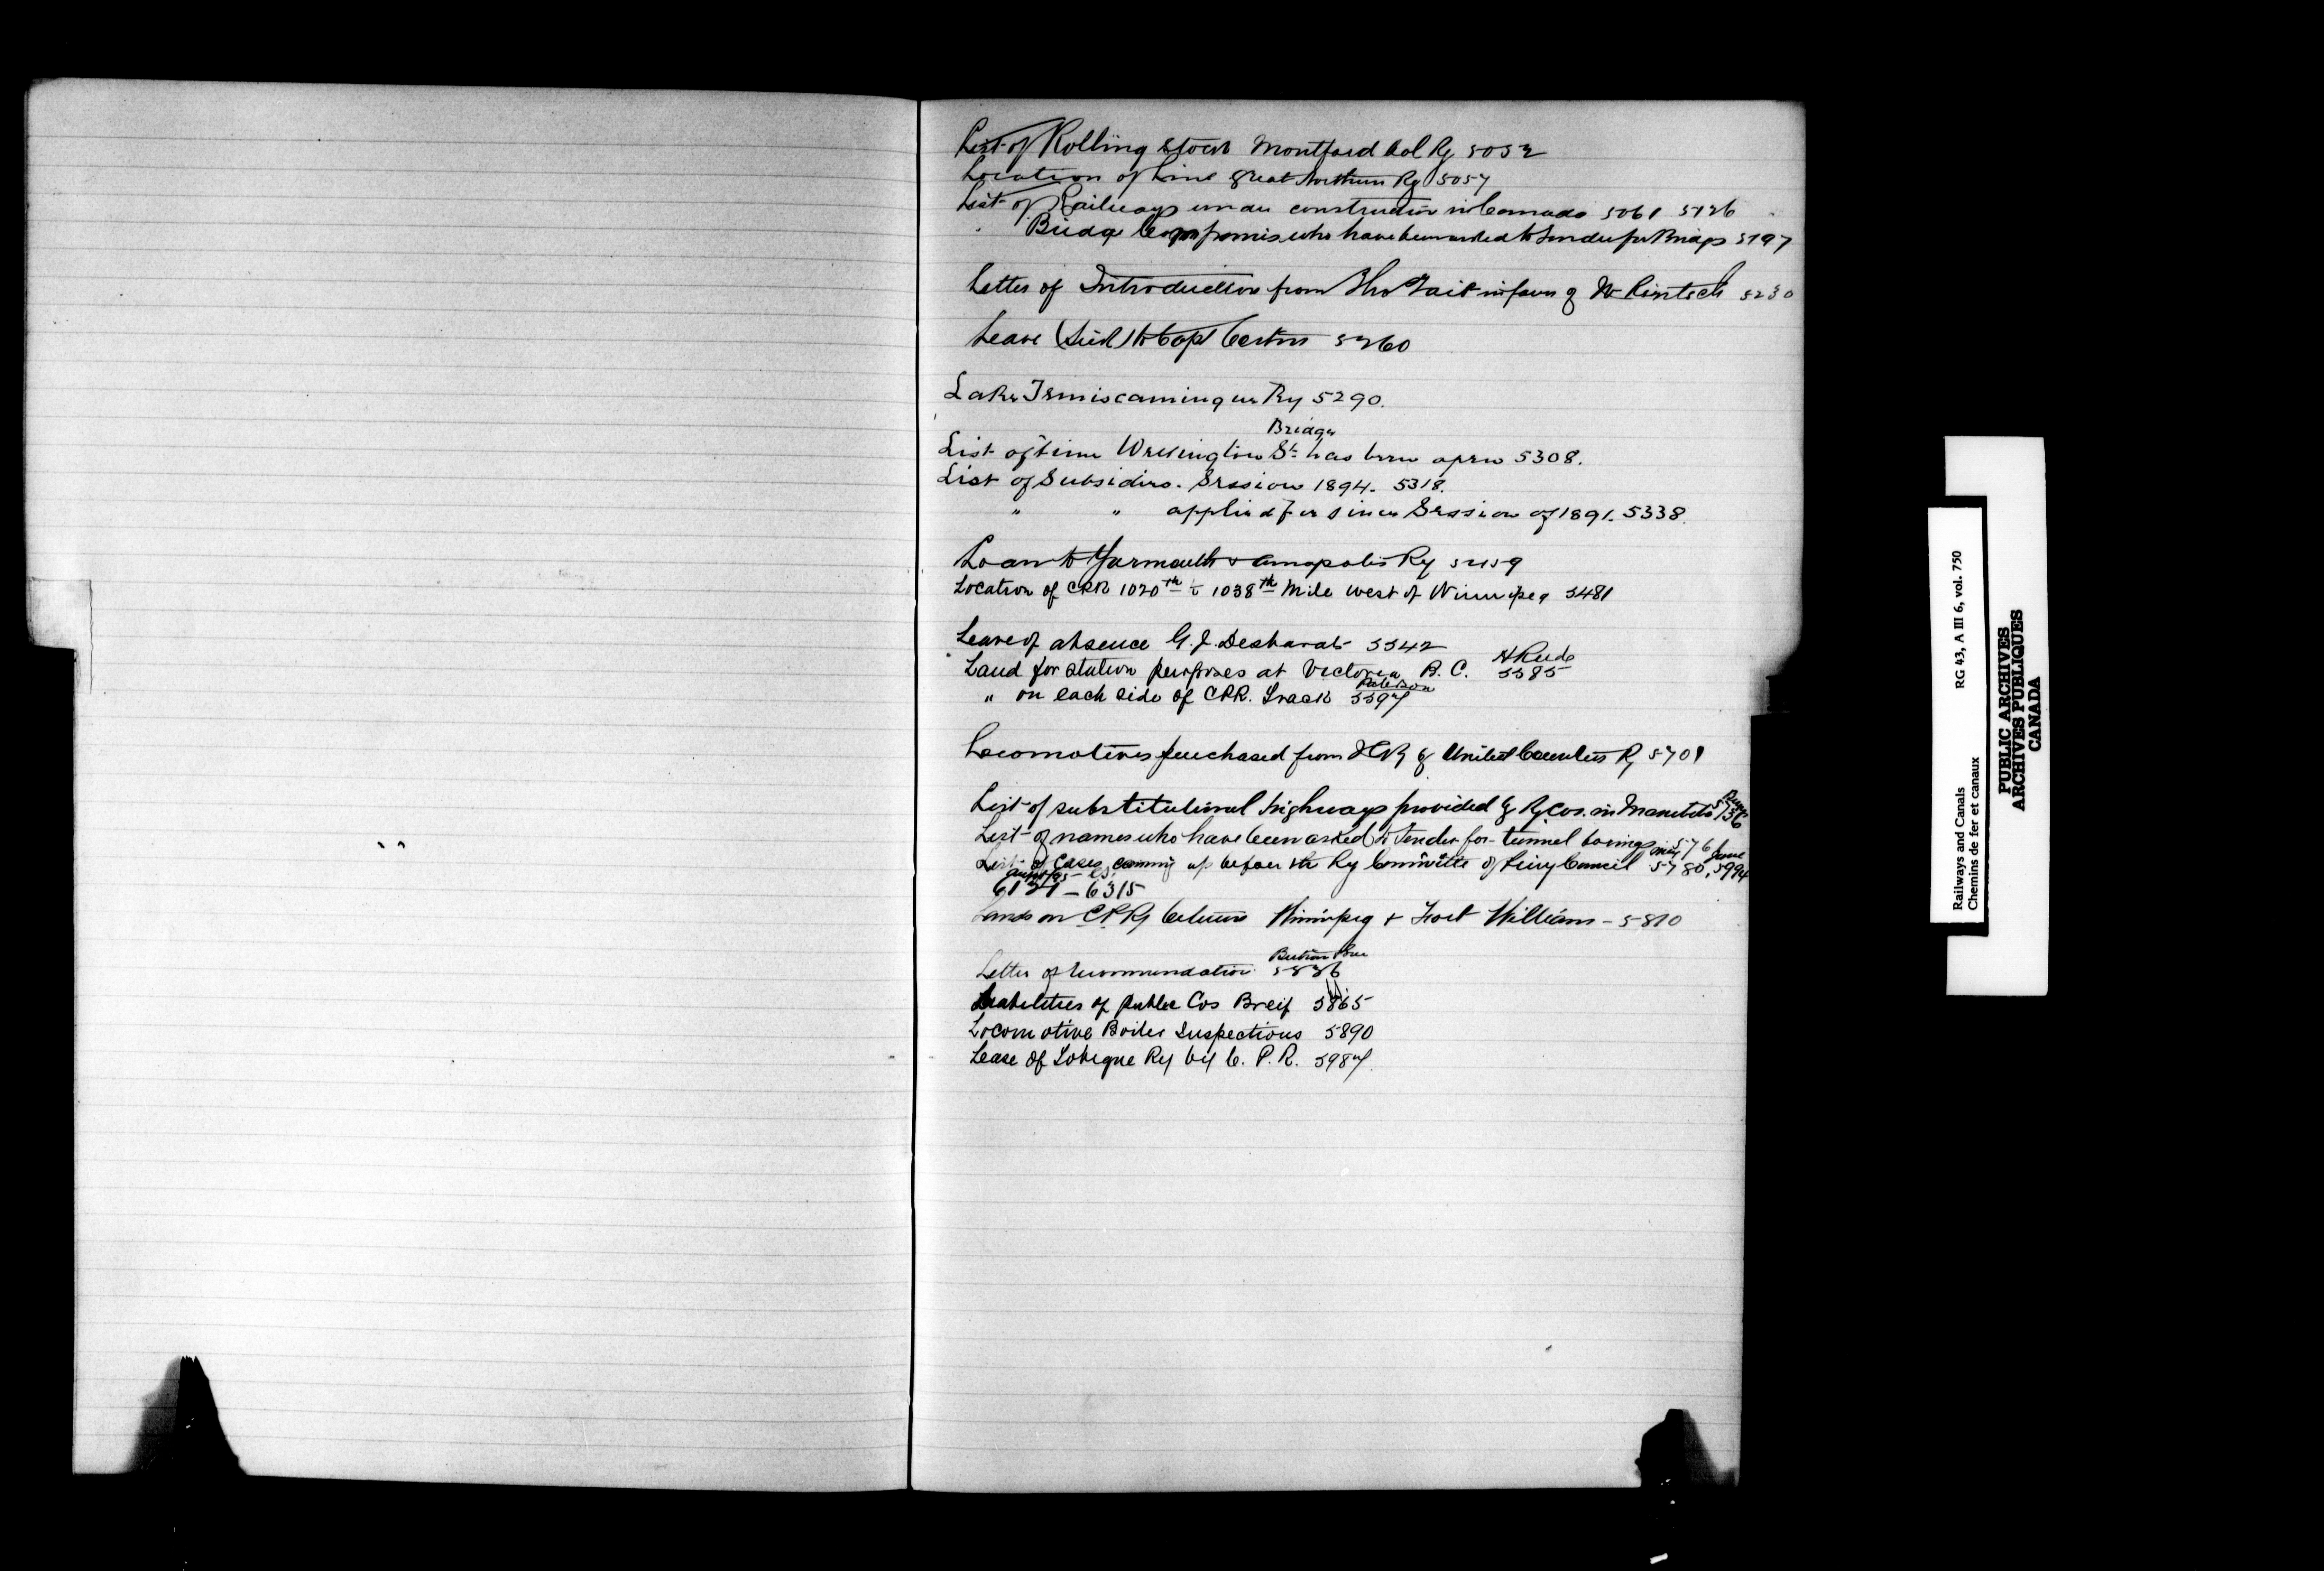 List of Rolling Stock Montford Col Ry 5052
Location of Line Great Northern Ry 5057
List of Railways under construction in Canada 5061 5126
" Bridge Companies who have been asked to Tender for Bridges 5197
Letter of Introduction from Tho Tait in favor of Mr Rintsch 5230
Leave (Sick) to Capt 5260
Lake Temiscamingue Ry 5290.
Bridge
List of time Wellington St. has been open 5308.
List of Subsidies. Session 1894. 5318.
" " applied for since Session of 1891. 5338.
Loan to Yarmouth & Annapolis Ry 5459
Location of CPR 1020th to 1038th Mile west of Winnipeg 5481
Leave of absence G. J. Desbarats 5542
Land for station purposes at Victoria B. C. 5585
" on each side of CPR. Track 5597
Locomotives purchased from ICRy by United Counties Ry 5701
List of substitutional highways provided by Ry Cos. in Manitoba 5736
List of names who have been asked to Tender for tunnel borings 576
List of Cases coming up before the Ry Committee of Privy Council 5780, 5994
6131 - 6315
Lands on C.P.Ry between Winnipeg & Fort William - 5810
Letter of recommendation 5836
Liabilities of Public Cos Breif 5865
Locomotive Boiler Inspections 5890
Lease of Tobique Ry by C. P. R. 5987
Railways and Canals RG 43, A III 6, vol. 750
Chemins de fer et canaux
PUBLIC ARCHIVES
ARCHIVES PUBLIQUES
CANADA